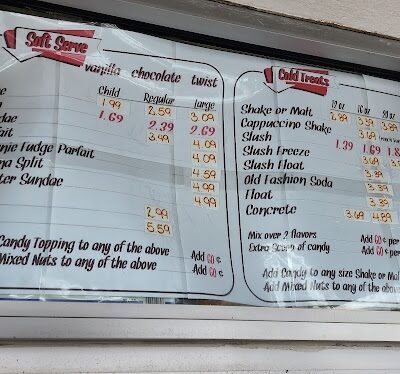 Soft Serve
vanilla chocolate twist
Child Regular Large
1.99 2.59 3.09
1.69 2.39 2.69
3.49 4.09
nie Fudge Parfait 4.09
na Split 4.59
ter Sundae 4.99
4.99
2.99
5.59
Candy Topping to any of the above Add 60¢
Mixed Nuts to any of the above Add 60¢
Cold Treats
Shake or Malt 2.89 3.39 3.89
Cappuccino Shake 3.69
Slush 1.39 1.69 1.8
Slush Freeze 3.39
Slush Float 3.39
Old Fashion Soda 3.39
Float 3.39
Concrete 3.69 4.89
Mix over 2 flavors Add 60¢ per
Extra Scoop of candy Add 60¢ per
Add Candy to any size Shake or Mal
Add Mixed Nuts to any of the above